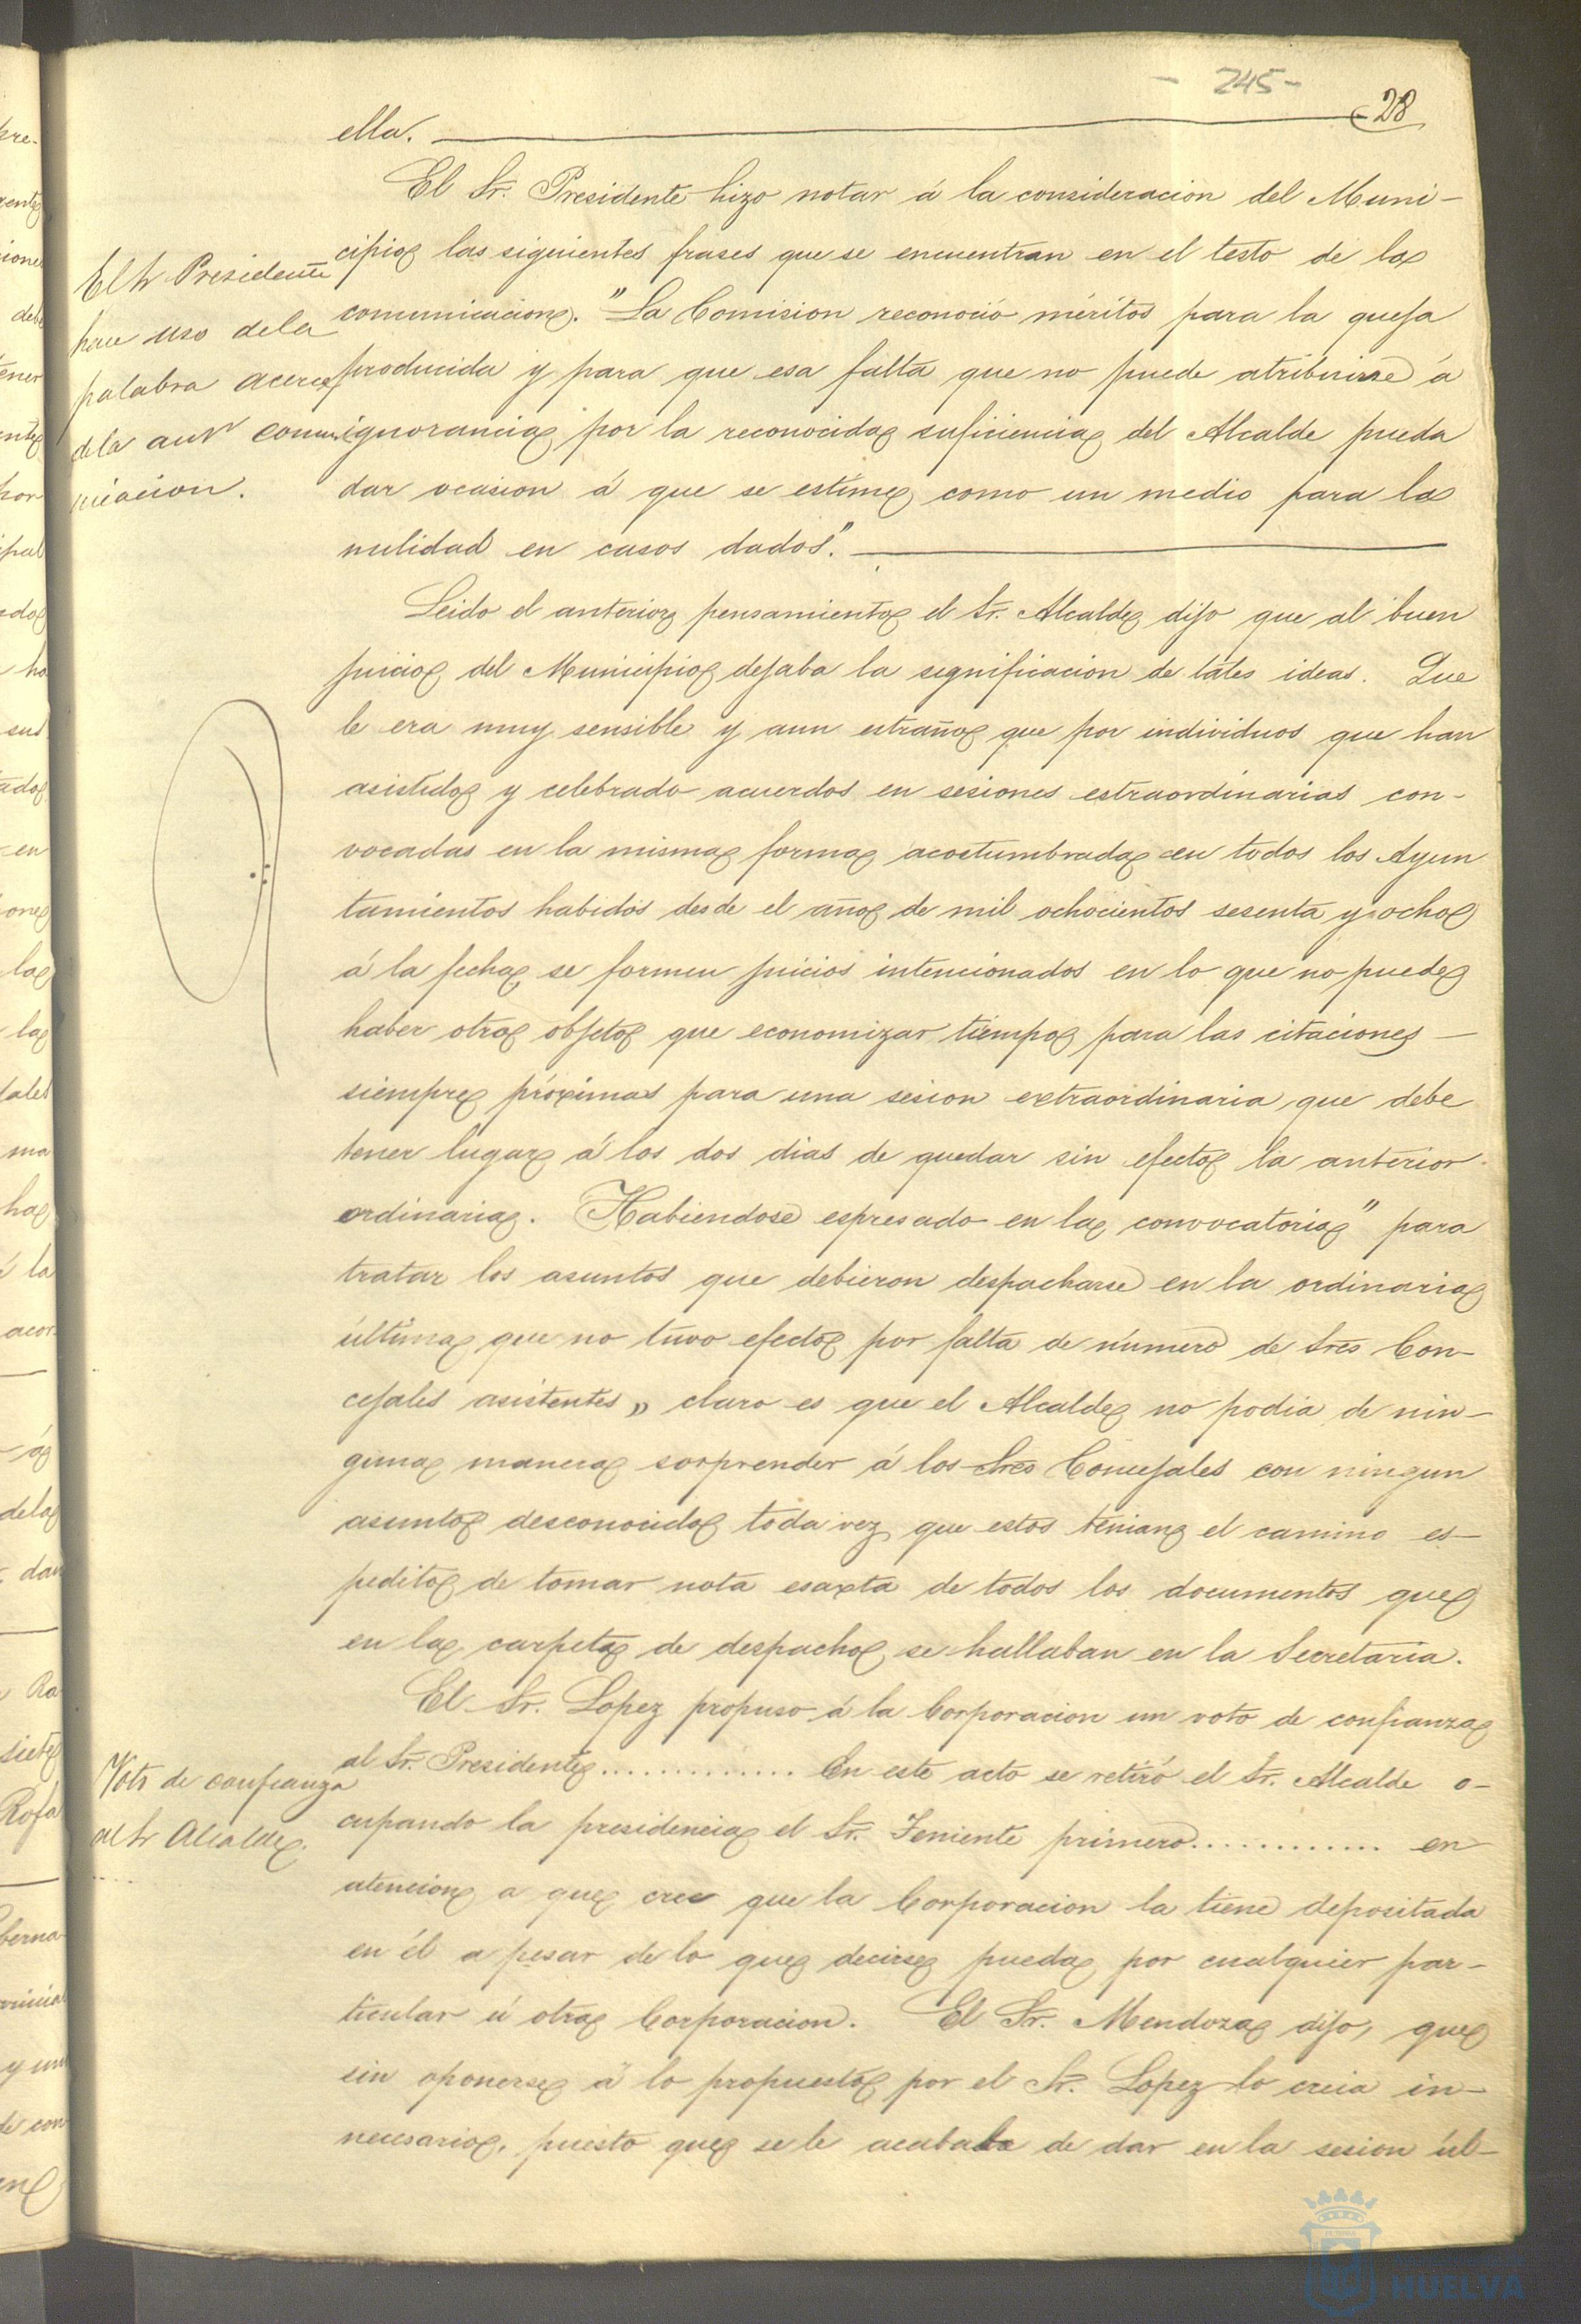 - 245 -
28
ella.
El Sr. Presidente hizo notar á la consideracion del Muni-
cipio las siguientes frases que se encuentran en el testo de la
comunicacion. "La Comision reconoció méritos para la queja
producida y para que esa falta que no puede atribuirse á
ignorancia por la reconocida suficiencia del Alcalde pueda
dar ocasion á que se estime como un medio para la
nulidad en casos dados".
El Sr Presidente
hace uso de la
palabra acerca
de la antr comu
nicacion.
Leido el anterior pensamiento el Sr. Alcalde dijo que al buen
juicio del Municipio dejaba la significacion de tales ideas. Que
le era muy sensible y aun estraño que por individuos que han
asistido y celebrado acuerdos en sesiones estraordinarias con-
vocadas en la misma forma acostumbrada en todos los Ayun
tamientos habidos desde el año de mil ochocientos sesenta y ocho
á la fecha, se formen juicios intencionados en lo que no puede
haber otro objeto que economizar tiempo para las citaciones -
siempre próximas para una sesion extraordinaria que debe
tener lugar á los dos dias de quedar sin efecto la anterior
ordinaria. Habiendose espresado en la convocatoria " para
tratar los asuntos que debieron despacharse en la ordinaria
última que no tuvo efecto por falta de número de Sres Con-
cejales asistentes" claro es que el Alcalde no podia de nin-
guna manera sorprender á los Sres Concejales con ningun
asunto desconocido toda vez que estos tenian el camino es-
pedito de tomar nota esacta de todos los documentos que
en la carpeta de despacho se hallaban en la Secretaria.
El Sr. Lopez propuso á la Corporacion un voto de confianza
al Sr. Presidente............. En este acto se retiró el Sr. Alcalde o-
cupando la presidencia el Sr. Teniente primero............. en
atencion a que cree que la Corporacion la tiene depositada
en él a pesar de lo que decirse pueda por cualquier par-
ticular ú otra Corporacion. El Sr. Mendoza dijo, que
sin oponerse á lo propuesto por el Sr. Lopez lo creia in-
necesario, puesto que se le acababa de dar en la sesion úl-
Voto de confianza
al Sr Alcalde.
HUELVA